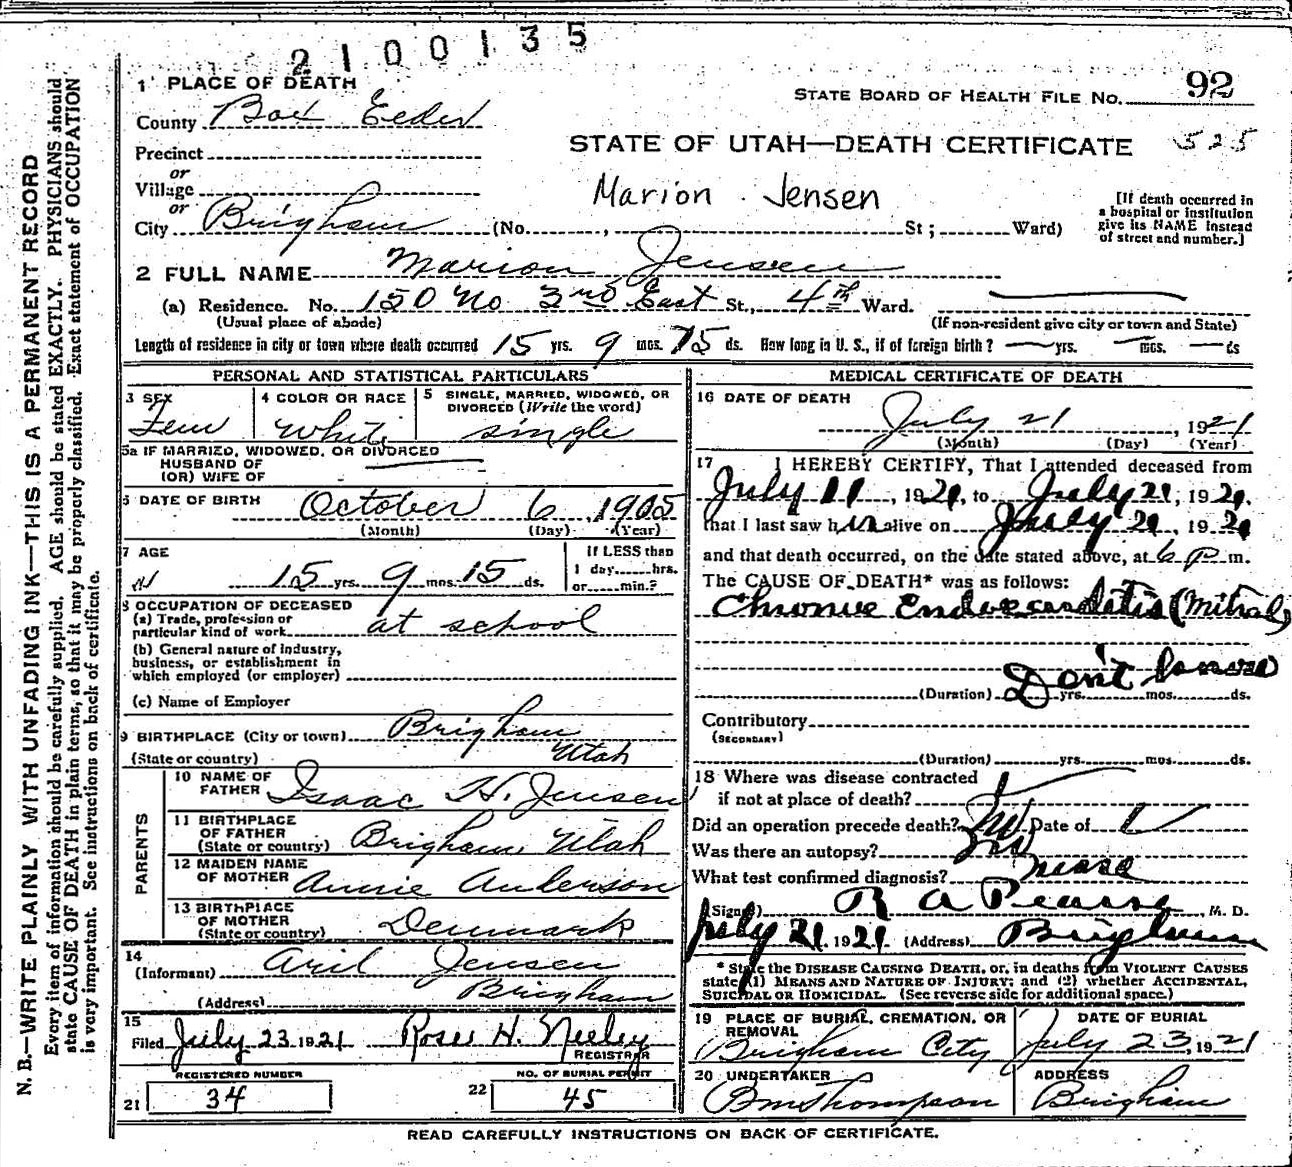 2100135
1 PLACE OF DEATH
STATE BOARD OF HEALTH FILE NO. 92
County Box Elder
STATE OF UTAH—DEATH CERTIFICATE 525
Precinct
or
Village
Marion Jensen
[If death occurred in
a hospital or institution
give its NAME instead
of street and number.]
or
City Brigham (No. , St ; Ward)
2 FULL NAME Marion Jensen
(a) Residence. No. 150 No 3rd East St., 4th Ward.
(Usual place of abode) (If non-resident give city or town and State)
Length of residence in city or town where death occurred 15 yrs. 9 mos. 15 ds. How long in U. S., if of foreign birth? yrs. mos. ds
PERSONAL AND STATISTICAL PARTICULARS
3 SEX
Fem
4 COLOR OR RACE
White
5 SINGLE, MARRIED, WIDOWED, OR
DIVORCED (Write the word)
single
5a IF MARRIED, WIDOWED, OR DIVORCED
HUSBAND OF
(OR) WIFE OF
6 DATE OF BIRTH October 6, 1905
(Month) (Day) (Year)
7 AGE
15 yrs. 9 mos. 15 ds.
If LESS than
1 day, hrs.
or min.?
8 OCCUPATION OF DECEASED
(a) Trade, profession or
particular kind of work at school
(b) General nature of industry,
business, or establishment in
which employed (or employer)
(c) Name of Employer
9 BIRTHPLACE (City or town) Brigham
(State or country) Utah
PARENTS
10 NAME OF
FATHER Isaac H. Jensen
11 BIRTHPLACE
OF FATHER
(State or country) Brigham Utah
12 MAIDEN NAME
OF MOTHER Annie Anderson
13 BIRTHPLACE
OF MOTHER
(State or country) Denmark
14
(Informant) Jensen
(Address) Brigham
15
Filed July 23 1921 Rose H. Neeley
REGISTRAR
REGISTERED NUMBER
21 34
NO. OF BURIAL PERMIT
22 45
MEDICAL CERTIFICATE OF DEATH
16 DATE OF DEATH
July 21, 1921
(Month) (Day) (Year)
17 I HEREBY CERTIFY, That I attended deceased from
July 11, 1921, to July 21, 1921,
that I last saw her alive on July 21, 1921
and that death occurred, on the date stated above, at 6 p m.
The CAUSE OF DEATH* was as follows:
Chronic Endocarditis (Mitral)
(Duration) Don't know yrs. mos. ds.
Contributory
(SECONDARY)
(Duration) yrs. mos. ds.
18 Where was disease contracted
if not at place of death?
Did an operation precede death? No Date of
Was there an autopsy? No
What test confirmed diagnosis?
(Signed) R A Pearse, M. D.
July 21 1921 (Address) Brigham
* State the DISEASE CAUSING DEATH, or, in deaths from VIOLENT CAUSES
state (1) MEANS AND NATURE OF INJURY; and (2) whether ACCIDENTAL,
SUICIDAL OR HOMICIDAL. (See reverse side for additional space.)
19 PLACE OF BURIAL, CREMATION, OR
REMOVAL
Brigham City
DATE OF BURIAL
July 23, 1921
20 UNDERTAKER
BM Thompson
ADDRESS
Brigham
READ CAREFULLY INSTRUCTIONS ON BACK OF CERTIFICATE.
N. B.—WRITE PLAINLY WITH UNFADING INK—THIS IS A PERMANENT RECORD
Every item of information should be carefully supplied. AGE should be stated EXACTLY. PHYSICIANS should
state CAUSE OF DEATH in plain terms, so that it may be properly classified. Exact statement of OCCUPATION
is very important. See instructions on back of certificate.